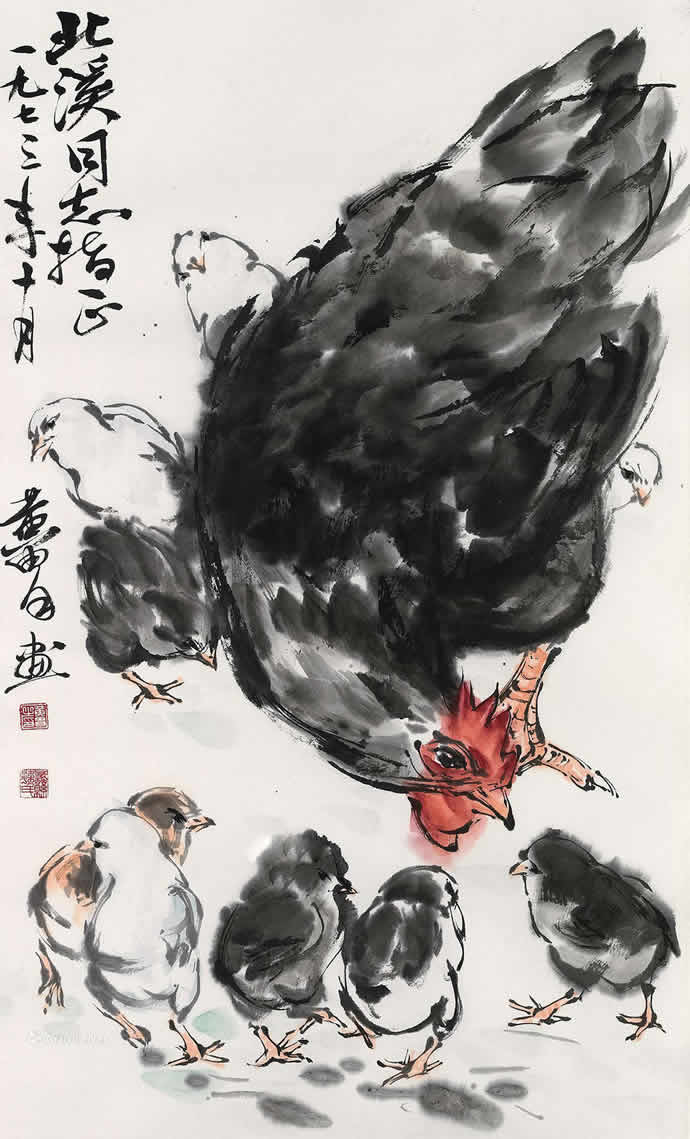 北溪同志指正
一九七三年十月
黄胄画